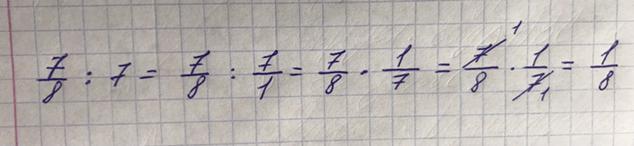 7/8 : 7 = 7/8 : 7/1 = 7/8 · 1/7 = 7̸ 1/8 · 1/7̸ 1 = 1/8